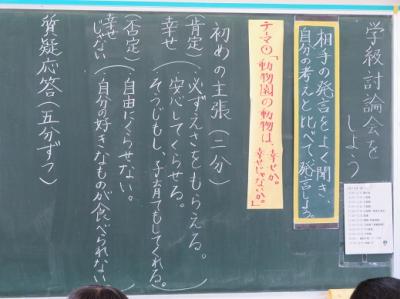 学級討論会を
しよう
相手の発言をよく聞き、
自分の考えと比べて発言しよう。
テーマ①「動物園の動物は、幸せか。
幸せじゃないか。」
初めの主張(二分)
(肯定)
幸せ
・必ずえさをもらえる。
・安心してくらせる。
・そうじもし、子育てもしてくれる。
(否定)
幸せ
じゃない
・自由にくらせない。
・自分の好きなものが食べられない
質疑応答(五分ずつ)